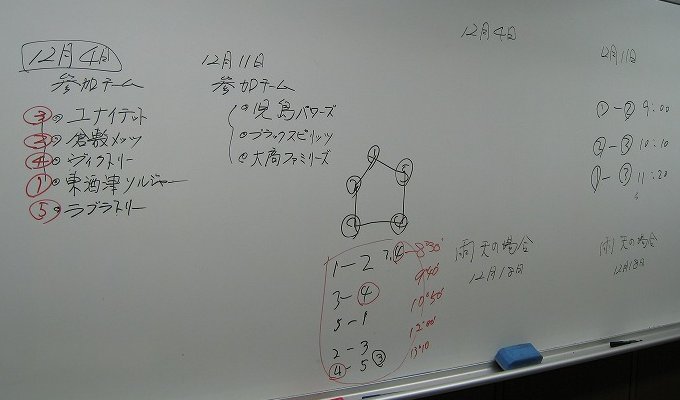 12月4日
参加チーム
③ ユナイテッド
② 倉敷メッツ
④ ヴィクトリー
① 東酒津ソルジャー
⑤ ラブラトリー
12月11日
参加チーム
児島パワーズ
ブラックスピリッツ
大高ファミリーズ
1
2
5
1-2 8:30
3-④ 9:40
5-1 10:50
2-3 12:00
④-5 ③ 13:10
12月4日
雨天の場合
12月18日
12月11日
①-② 9:00
②-③ 10:10
①-③ 11:20
雨天の場合
12月18日